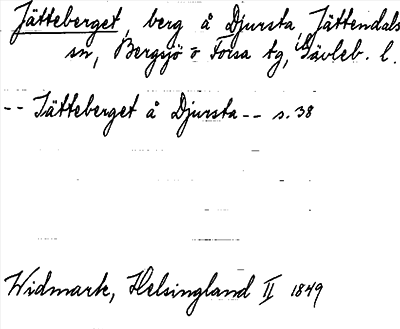 Jätteberget, berg å Djursta, Jättendals
sn, Bergsjö o Forsa tg, Gävleb. l.
-- Jätteberget å Djursta -- s. 38
Widmark, Helsingland II 1849